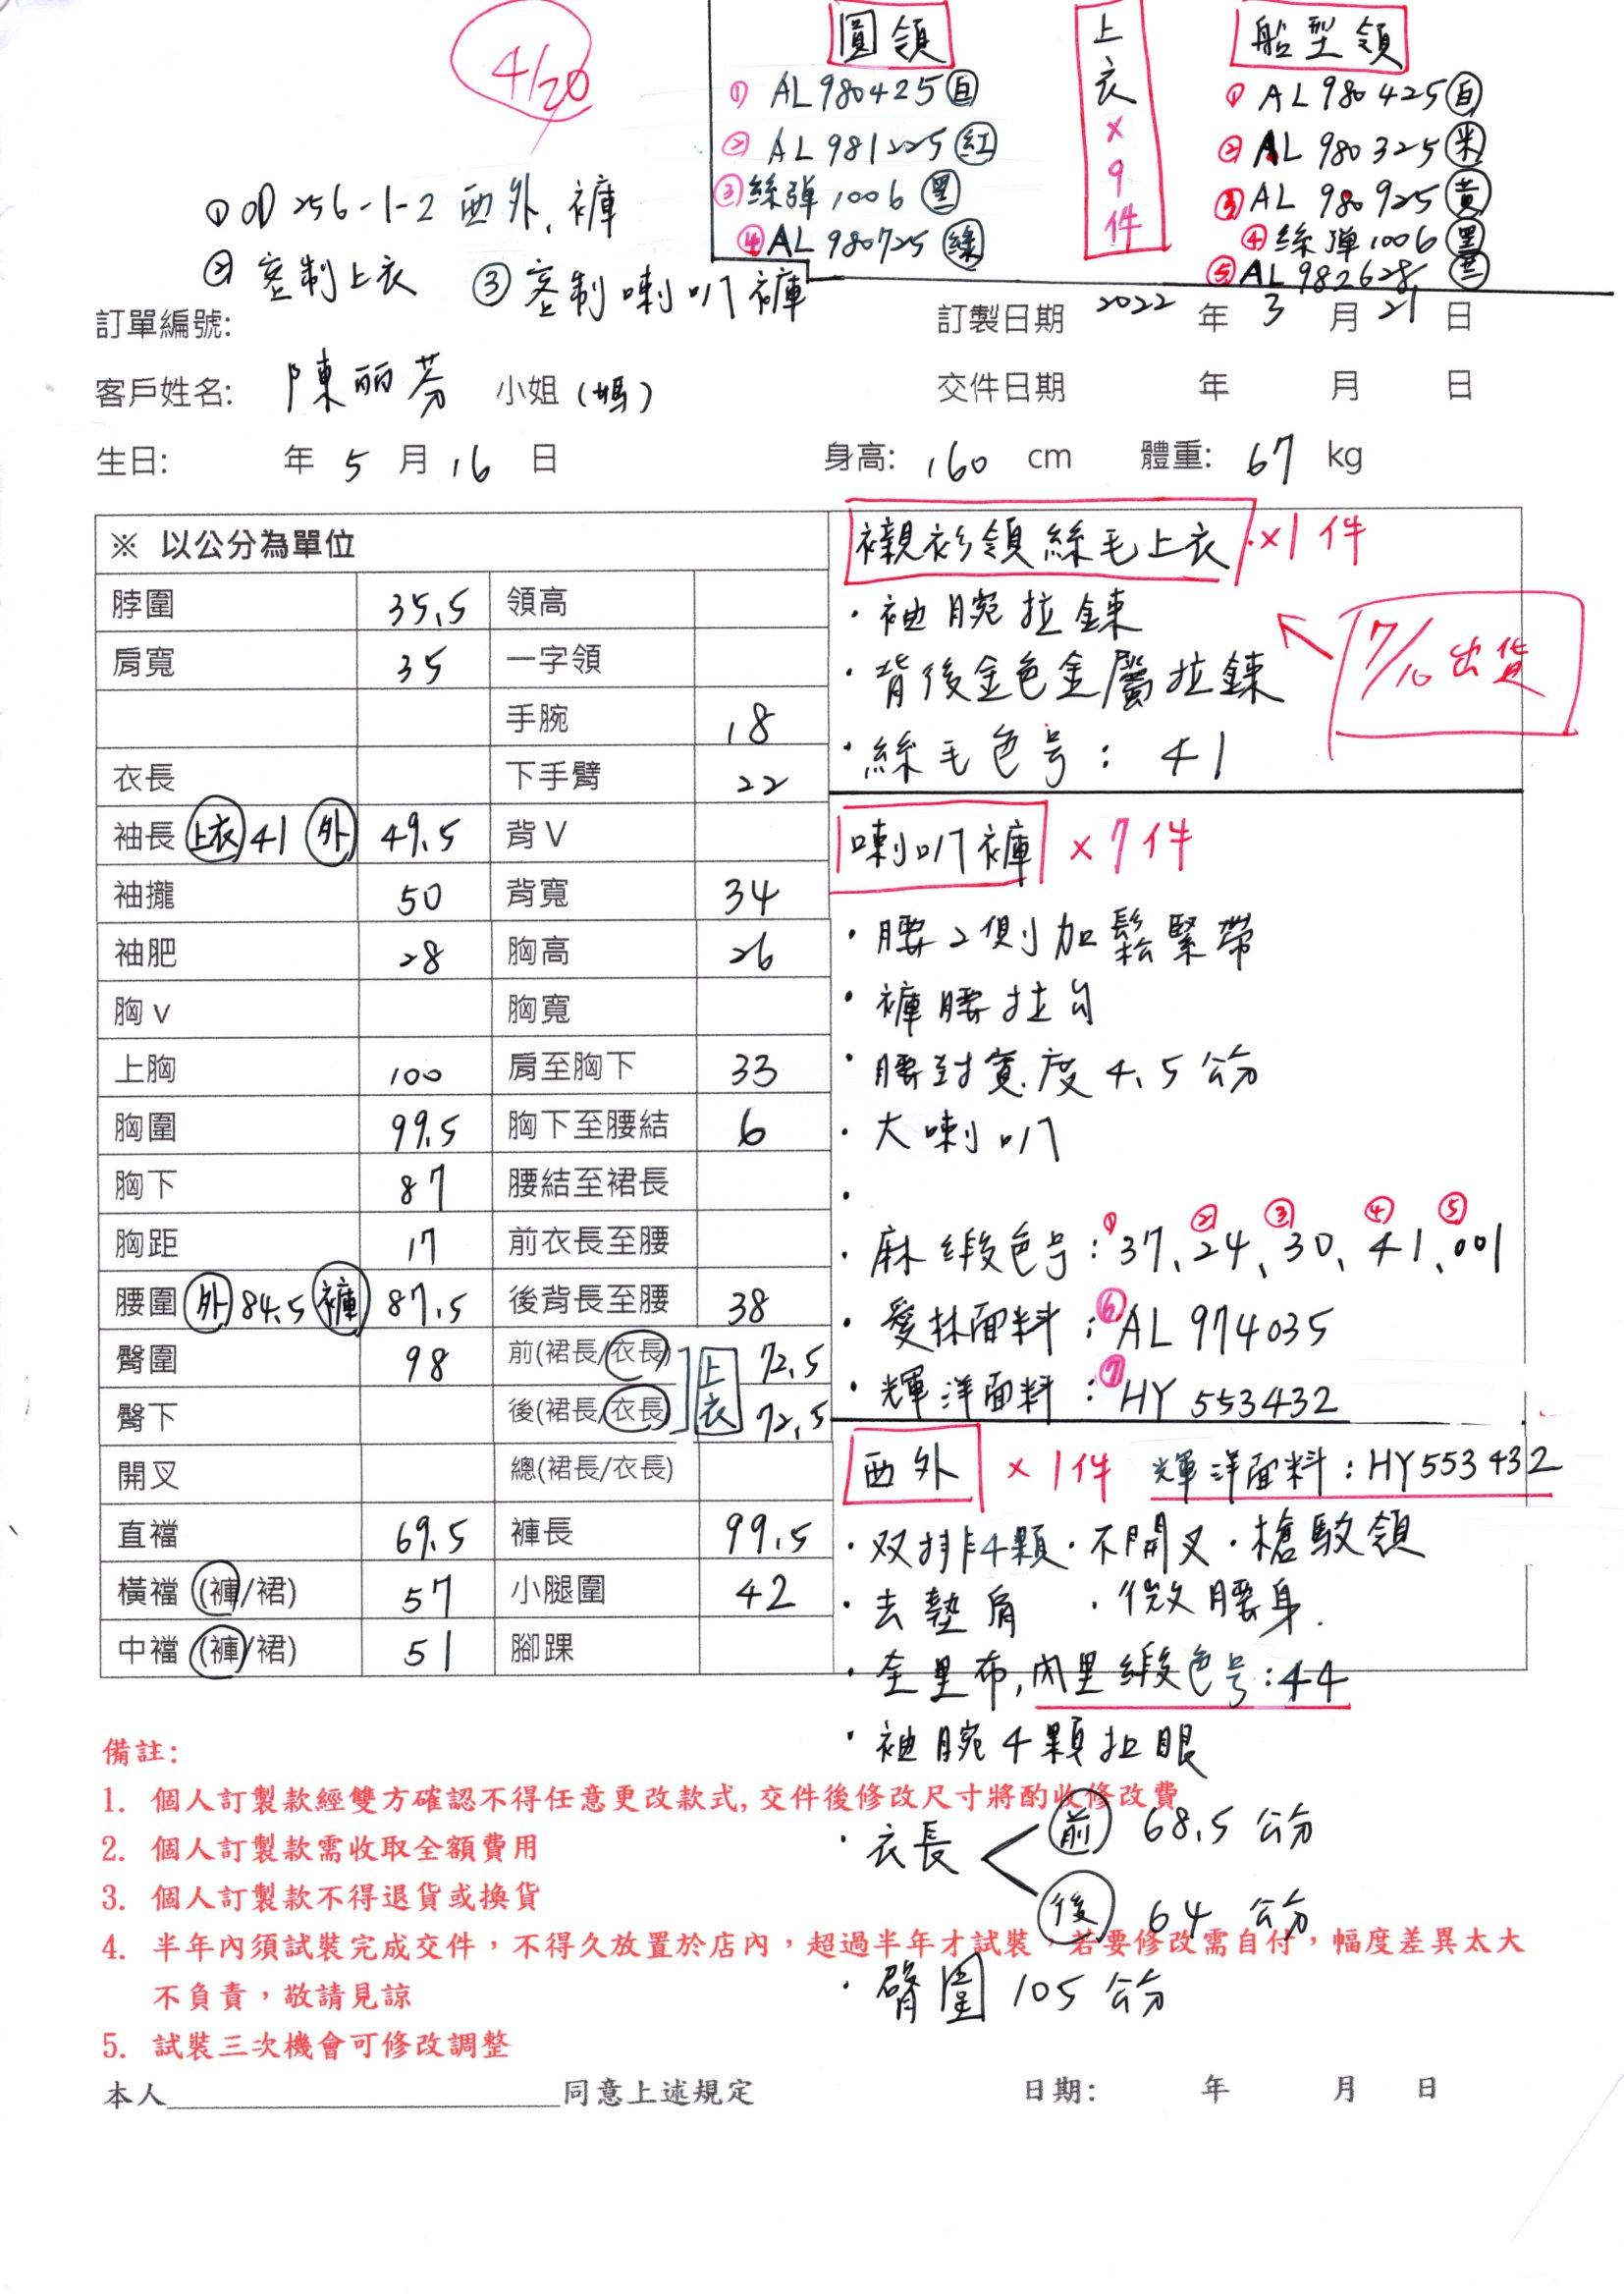 4/20
圓領
① AL980425 白
② AL981225 紅
③ 絲彈1006 黑
④ AL980725 綠
上衣×9件
船型領
① AL980425 白
② AL980325 米
③ AL980925 黃
④ 絲彈1006 黑
⑤ AL982628
① OD256-1-2 西外、褲
② 客制上衣 ③ 客制喇叭褲
訂單編號: 訂製日期 2022 年 3 月 21 日
客戶姓名: 陳丽芬 小姐(媽) 交件日期 年 月 日
生日: 年 5 月 16 日 身高: 160 cm 體重: 67 kg
※ 以公分為單位
脖圍 35.5 領高
肩寬 35 一字領
手腕 18
衣長 下手臂 22
袖長 上衣 41 外 49.5 背V
袖攏 50 背寬 34
袖肥 28 胸高 26
胸v 胸寬
上胸 100 肩至胸下 33
胸圍 99.5 胸下至腰結 6
胸下 87 腰結至裙長
胸距 17 前衣長至腰
腰圍 外 84.5 褲 87.5 後背長至腰 38
臀圍 98 前(裙長/衣長) 上衣 72.5
臀下 後(裙長/衣長) 72.5
開叉 總(裙長/衣長)
直襠 69.5 褲長 99.5
橫襠 (褲/裙) 57 小腿圍 42
中襠 (褲/裙) 51 腳踝
襯衫領絲毛上衣 ×1件
・袖腕拉鍊
・背後金色金屬拉鍊
・絲毛色号: 41
7/10 出貨
喇叭褲 ×7件
・腰2側加鬆緊帶
・褲腰拉勾
・腰封寬度4.5公分
・大喇叭
・
・麻緞色号: ①37、②24、③30、④41、⑤001
・愛林面料: ⑥AL 974035
・輝洋面料: ⑦HY 553432
西外 ×1件 輝洋面料: HY553432
・双排4顆・不開叉・槍駁領
・去墊肩 ・微腰身.
・全里布,內里緞色号:44
・袖腕4顆扣眼
・衣長 前 68.5 公分
後 64 公分
・臀圍 105 公分
備註:
1. 個人訂製款經雙方確認不得任意更改款式,交件後修改尺寸將酌收修改費
2. 個人訂製款需收取全額費用
3. 個人訂製款不得退貨或換貨
4. 半年內須試裝完成交件，不得久放置於店內，超過半年才試裝，若要修改需自付，幅度差異太大
不負責，敬請見諒
5. 試裝三次機會可修改調整
本人____________________同意上述規定 日期: 年 月 日